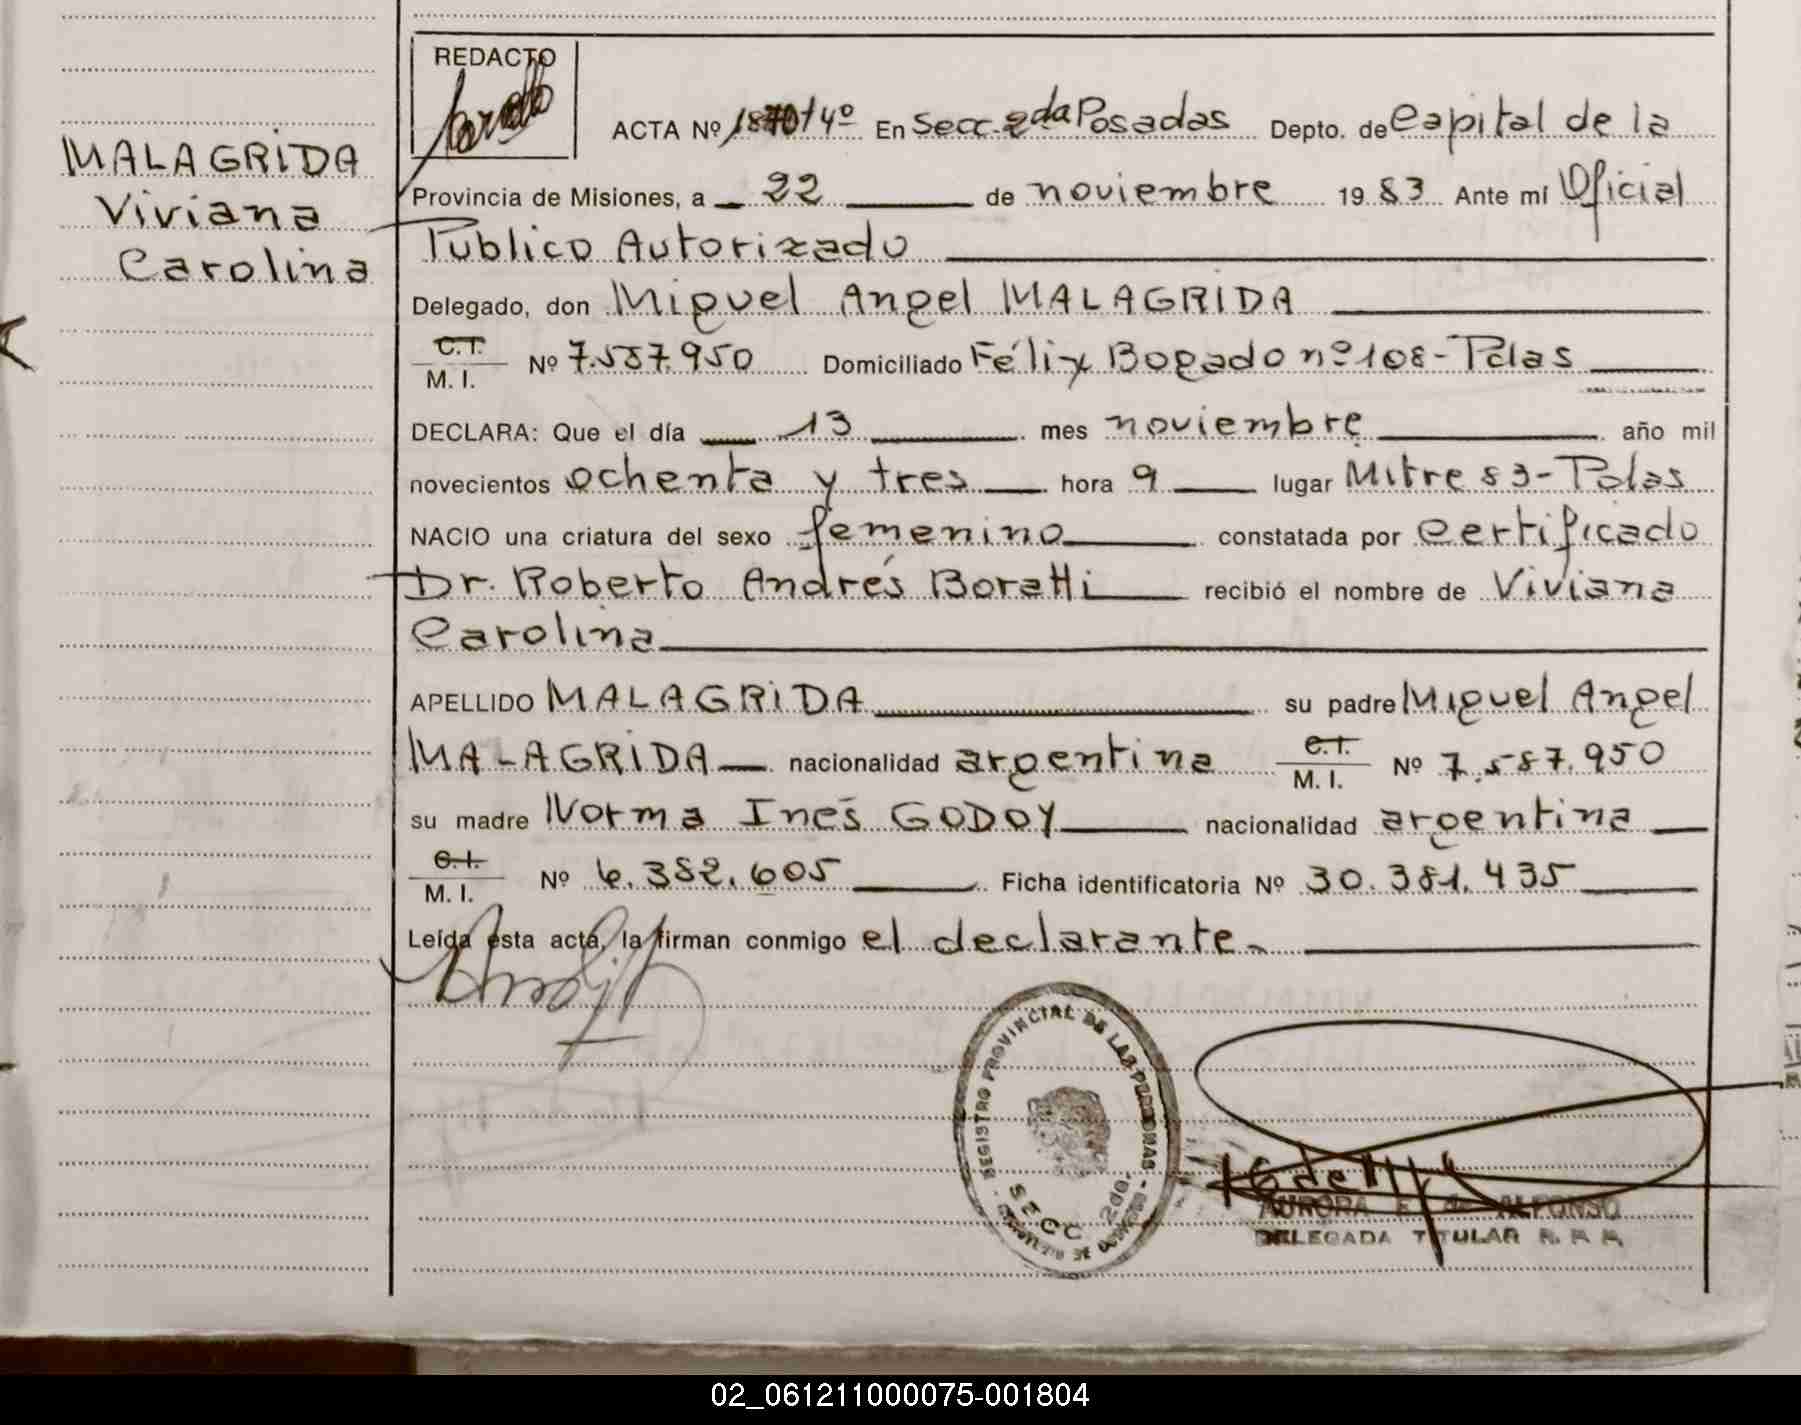 REDACTO
ACTA Nº 1870 t 4º En Secc. 2da Posadas Depto. de Capital de la
MALAGRIDA
Viviana
Carolina
Provincia de Misiones, a 22 de noviembre 1983 Ante mí Oficial
Publico Autorizado
Delegado, don Miguel Angel MALAGRIDA
C.I. M. I. Nº 7.587.950 Domiciliado Félix Bogado nº 108 - Pdas
DECLARA: Que el día 13 mes noviembre año mil
novecientos ochenta y tres hora 9 lugar Mitre 83 - Pdas
NACIO una criatura del sexo femenino constatada por certificado
Dr. Roberto Andrés Boratti recibió el nombre de Viviana
Carolina
APELLIDO MALAGRIDA su padre Miguel Angel
MALAGRIDA nacionalidad argentina C.I. M. I. Nº 7.587.950
su madre Norma Inés GODOY nacionalidad argentina
C.I. M. I. Nº 6.382.605 Ficha identificatoria Nº 30.381.435
Leída esta acta, la firman conmigo el declarante.
REGISTRO PROVINCIAL DE LAS PERSONAS
SECC 2da.
AURORA de ALFONSO
DELEGADA TITULAR R. P. P.
02_061211000075-001804